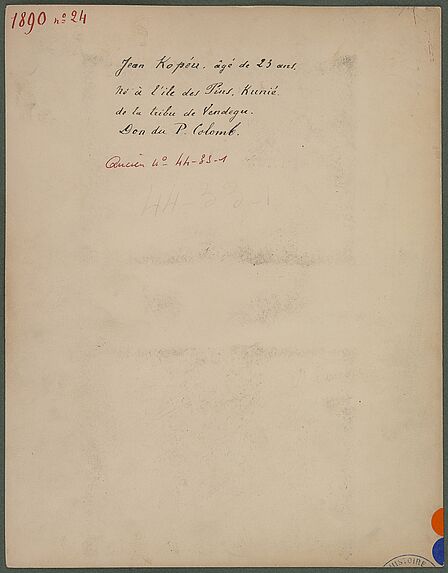 1890 nº 24
Jean Kopéu. âgé de 23 ans.
Né à l'île des Pins, Kunié
de la tribu de Vendegu.
Don du P. Colomb.
Ancien Nº 44-85-1
HISTOIRE